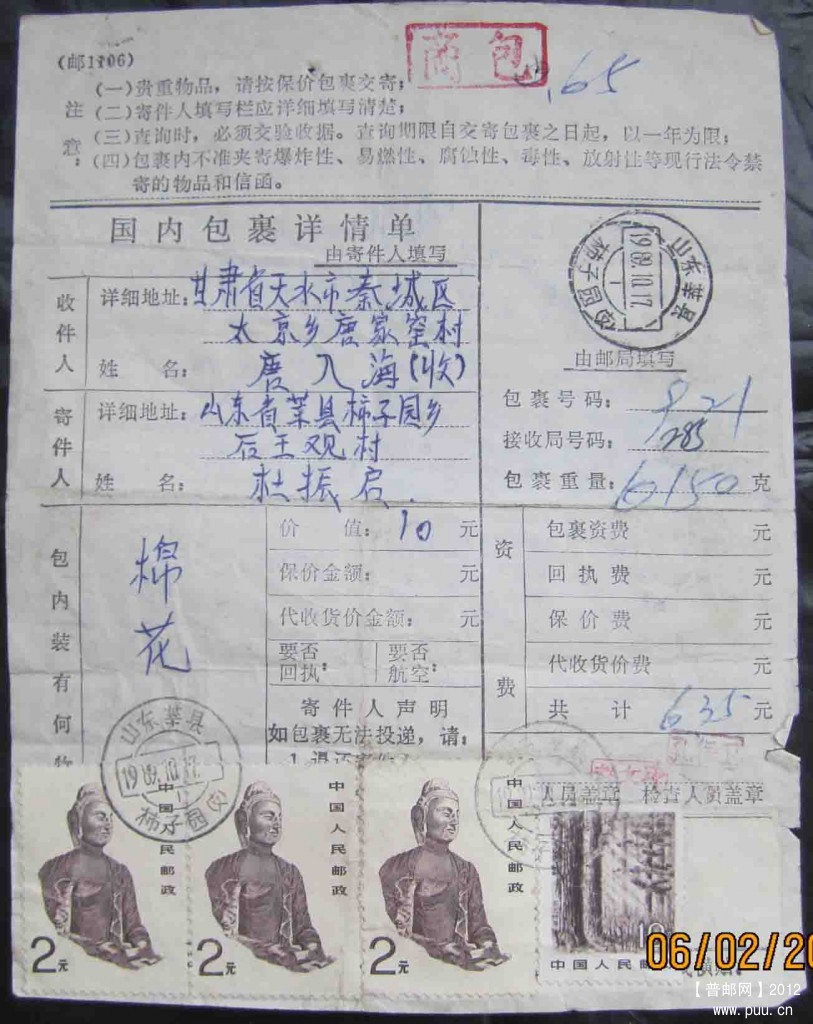 (邮1106)
商包
.65
注意：
(一)贵重物品，请按保价包裹交寄；
(二)寄件人填写栏应详细填写清楚；
(三)查询时，必须交验收据。查询期限自交寄包裹之日起，以一年为限；
(四)包裹内不准夹寄爆炸性、易燃性、腐蚀性、毒性、放射性等现行法令禁
寄的物品和信函。
国内包裹详情单
由寄件人填写
收件人
详细地址：甘肃省天水市秦城区
太京乡唐家窑村
姓 名：唐入海(收)
寄件人
详细地址：山东省莘县柿子园乡
后王观村
姓 名：杜振启.
山东莘县
1989.10.17
柿子园
由邮局填写
包裹号码：921
接收局号码：285
包裹重量：6150克
包内装有何
棉花
价 值：10元
保价金额： 元
代收货价金额： 元
要否回执：
要否航空：
寄件人声明
如包裹无法投递，请：
资费
包裹资费 元
回执费 元
保价费 元
代收货价费 元
共 计 635元
人员盖章 检查人员盖章
山东莘县
柿子园
中国人民邮政
2元
中国人民邮政
2元
中国人民邮政
2元
中国人民邮政
06/02/20
【普邮网】2012
www.puu.cn